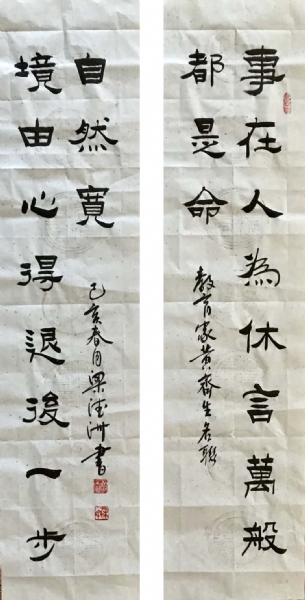 事在人為休言萬般
都是命
教育家黄齊生名聯
境由心得退後一步
自然寬
己亥春月梁達洲書